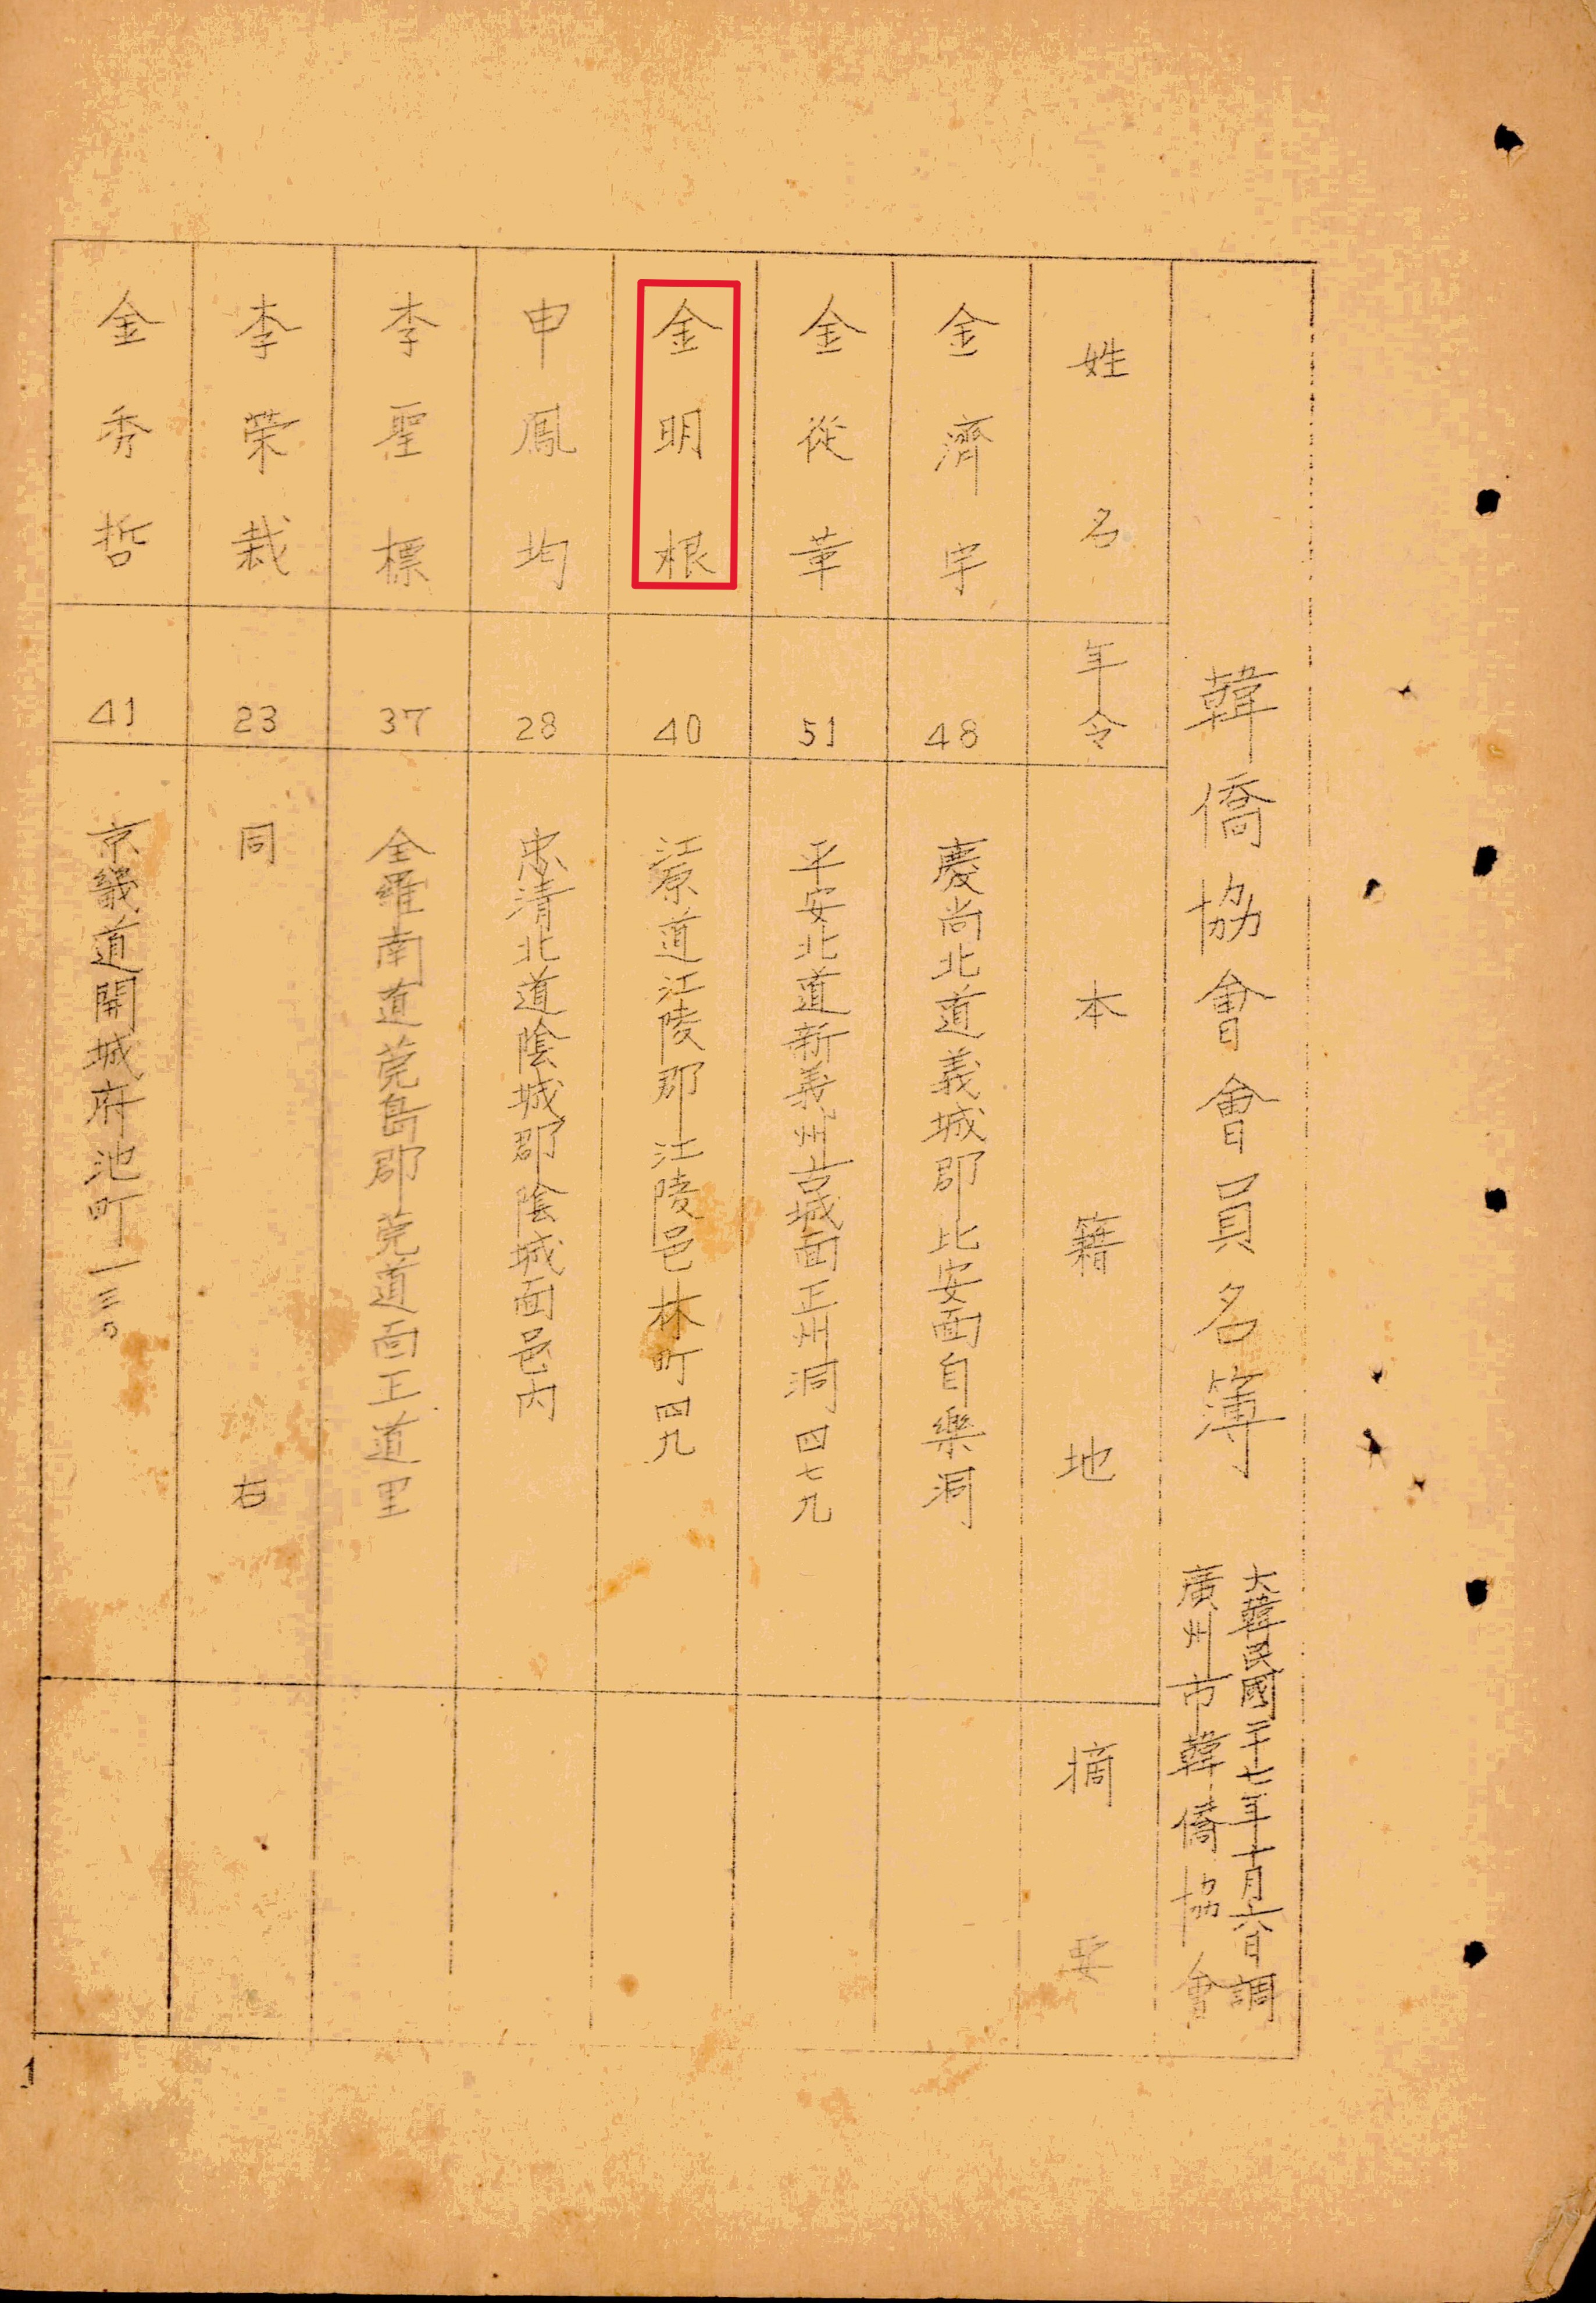 韓僑協會會員名簿
大韓民國二十七年十月六日調
廣州市韓僑協會
姓名 年令 本籍地 摘要
金濟宇 48 慶尚北道義城郡比安面自樂洞
金從華 51 平安北道新義州古城面正州洞四七九
金明根 40 江原道江陵郡江陵邑林町四九
申鳳均 28 忠清北道陰城郡陰城面邑内
李聖標 37 全羅南道莞島郡莞道面正道里
李荣裁 23 同右
金秀哲 41 京畿道開城府池町一三〇
1